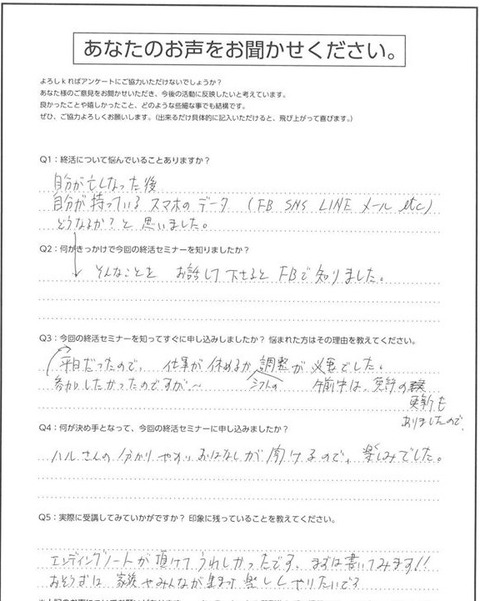 あなたのお声をお聞かせください。
よろしkればアンケートにご協力いただけないでしょうか？
あなた様のご意見をお聞かせいただき、今後の活動に反映したいと考えています。
良かったことや嬉しかったこと、どのような些細な事でも結構です。
ぜひ、ご協力よろしくお願いします。（出来るだけ具体的に記入いただけると、飛び上がって喜びます。）
Q1：終活について悩んでいることありますか？
自分が亡しなった後
自分が持っているスマホのデータ （FB SNS LINE メール etc）
どうなるか？と思いました。
Q2：何がきっかけで今回の終活セミナーを知りましたか？
そんなことを お話して下さると FBで知りました。
Q3：今回の終活セミナーを知ってすぐに申し込みしましたか？ 悩まれた方はその理由を教えてください。
平日だったので、仕事が休めるか 調整が必要でした。
参加したかったのですが〜 シフトの 午前中は、
更新も
ありましたので、
Q4：何が決め手となって、今回の終活セミナーに申し込みましたか？
ハルさんの分かりやすいおはなしが聞けるので、楽しみでした。
Q5：実際に受講してみていかがですか？ 印象に残っていることを教えてください。
エンディングノートが頂けてうれしかったです。まずは書いてみます!!
家族やみんなが集まって楽しくやりたいです